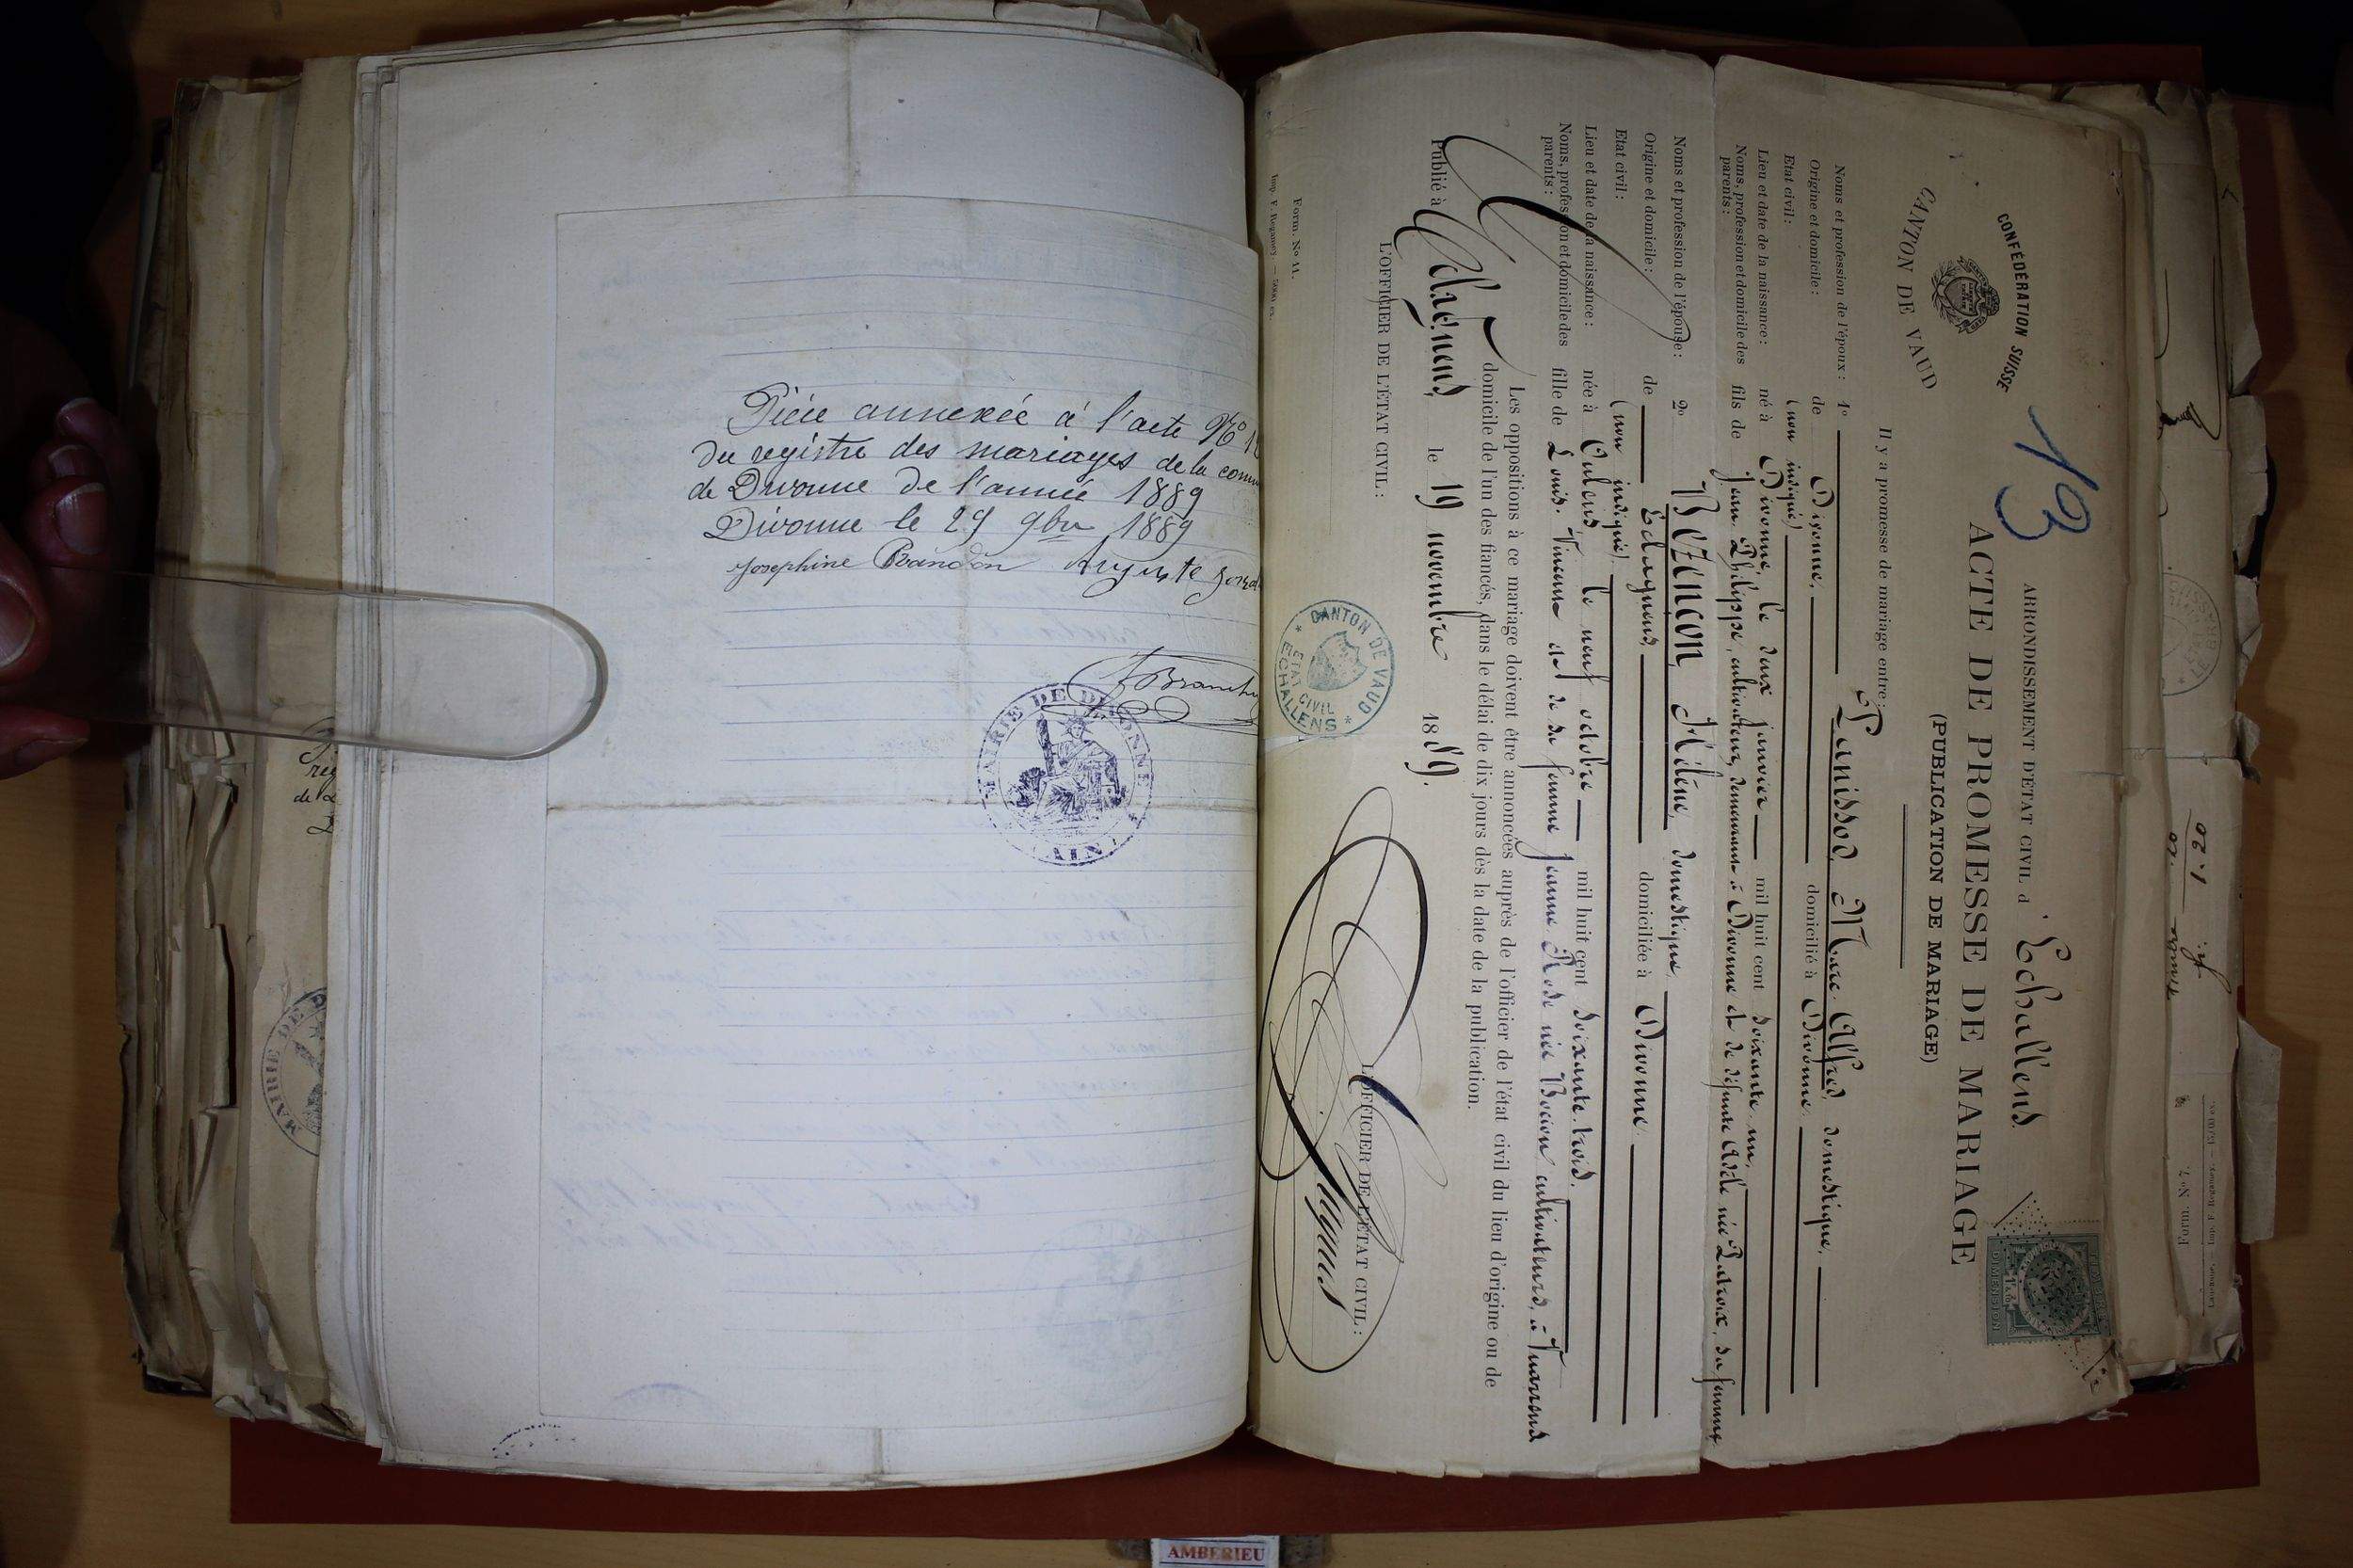 Pièce annexée à l'acte No 12
du registre des mariages de la comm
de Divonne de l'année 1889
Divonne le 29 9bre 1889
Josephine Randon Auguste
MAIRIE DE DIVONNE
(AIN)
13
CONFÉDÉRATION SUISSE
CANTON DE VAUD
ARRONDISSEMENT D'ÉTAT CIVIL d' Echallens
ACTE DE PROMESSE DE MARIAGE
(PUBLICATION DE MARIAGE)
Il y a promesse de mariage entre:
Noms et profession de l'époux: 1º Panissod, Marc Alfred, domestique,
Origine et domicile: de Divonne, domicilié à Divonne
Etat civil: (non indiqué)
Lieu et date de la naissance: né à Divonne, le deux janvier mil huit cent soixante un,
Noms, profession et domicile des parents: fils de Jean Philippe, cultivateur, demeurant à Divonne et de défunte Adèle née Lacroix, sa femme
Noms et profession de l'épouse: 2º Bezençon, Hélène, domestique
Origine et domicile: de Eclagnens, domiciliée à Divonne.
Etat civil: (non indiqué)
Lieu et date de la naissance: née à Oulens, le neuf octobre mil huit cent soixante-trois.
Noms, profession et domicile des parents: fille de Louis-Vincent et de sa femme Jeanne Rose née Bocion, cultivateurs, à Vuarrens
Les oppositions à ce mariage doivent être annoncées auprès de l'officier de l'état civil du lieu d'origine ou de
domicile de l'un des fiancés, dans le délai de dix jours dès la date de la publication.
Publié à Eclagnens, le 19 novembre 1889.
L'OFFICIER DE L'ÉTAT CIVIL:
L'OFFICIER DE L'ÉTAT CIVIL:
CANTON DE VAUD
ÉTAT CIVIL
ECHALLENS
Form. No 11.
Imp. F. Regamey. — 5000 ex.
Form. No 7.
DIMENSION
MAIRIE DE D
AMBERIEU